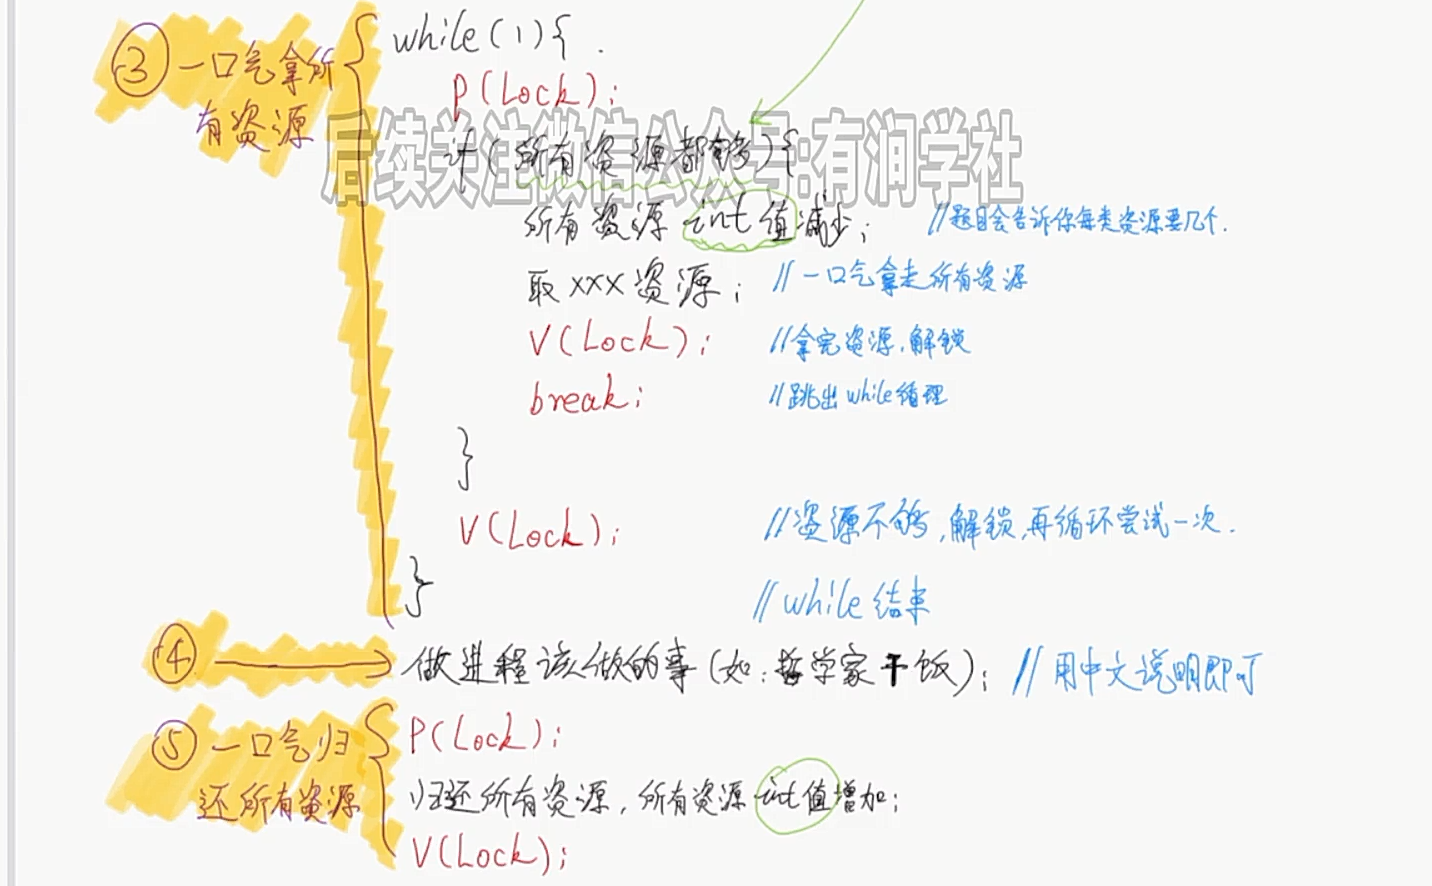 ③ 一口气拿所
有资源
while(1){
P(Lock);
后续关注微信公众号:有润学社
if(所有资源都够){
所有资源 int值减少; //题目会告诉你每类资源要几个.
取xxx资源; //一口气拿走所有资源
V(Lock); //拿完资源,解锁
break; //跳出while循环
}
V(Lock); //资源不够,解锁,再循环尝试一次.
} //while结束
④ 做进程该做的事(如:哲学家干饭); //用中文说明即可
⑤ 一口气归
还所有资源
P(Lock);
归还所有资源,所有资源int值增加;
V(Lock);